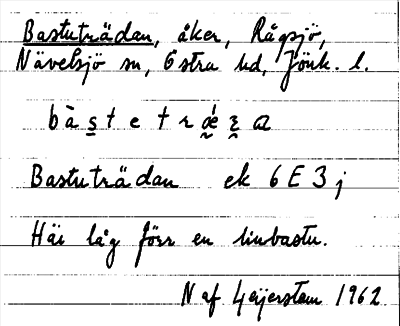 Bastuträdan, åker, Rågsjö,
Nävelsjö sn, Östra hd, Jönk. l.
bàs̱tetrǽ̰z̰a
Bastuträdan ek 6E3j
Här låg förr en linbastu.
N af Geijerstam 1962